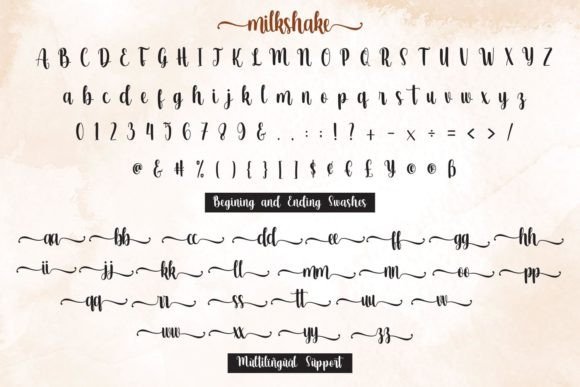 milkshake
A B C D E F G H I J K L M N O P Q R S T U V W X Y Z
a b c d e f g h i j k l m n o p q r s t u v w x y z
0 1 2 3 4 5 6 7 8 9 & . , : ; ! ? + - x ÷ = < > /
@ & # % ( ) { } [ ] $ ¢ € £ ¥ © ® ß
Begining and Ending Swashes
aa bb cc dd ee ff gg hh
ii jj kk ll mm nn oo pp
qq rr ss tt uu vv
ww xx yy zz
Multilingual Support